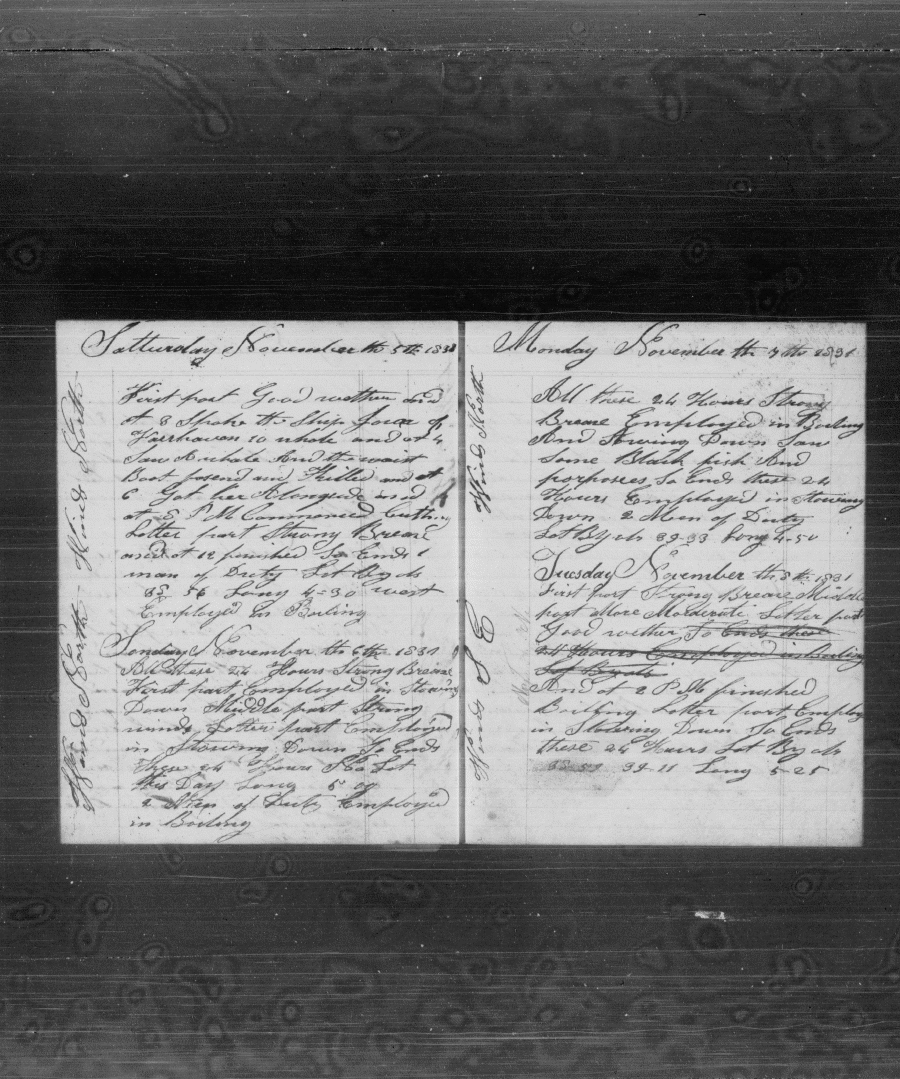 Satturday November th 5th 1831
Winds North
First part Good wether and
at 8 Spoke the Ship of
Fairhaven 10 whale and at 4
Saw A whale And the waist
Boat fasend and Killed and at
6 Got her Alongside and
at 8 P M Commenced Cutting
Latter part Strong Breaze
and at 12 finished So Ends 1
man of Duty Lat By ob
38 56 Long 4-30 west
Employed in Boiling
Sonday November th 6th 1831
Winds North
All these 24 Hours Strong Breaze
First part Employed in Stowing
Down Middle part Strong
winds Latter part Employed
in Stowing Down So Ends
these 24 Hours No Lat
this Day Long 5
2 Men of Duty Employed
in Boiling
Monday November th 7th 1831
Winds North
All these 24 Hours Strong
Breaze Employed in Boiling
And Stowing Down Saw
Some Black fish And
porposies So Ends these 24
Hours Employed in Stowing
Down 2 Men of Duty
Lat By ob 39-33 Long 4-50
Tuesday November th 8th 1831
Winds S E
First part Strong Breaze Middle
part More Moderati Latter part
Good wether So Ends these
24 Hours Employed in Boiling
Lat By ob
And at 2 P M finished
Boiling Latter part Employ
in Stowing Down So Ends
these 24 Hours Lat By ob
39-11 Long 5-25